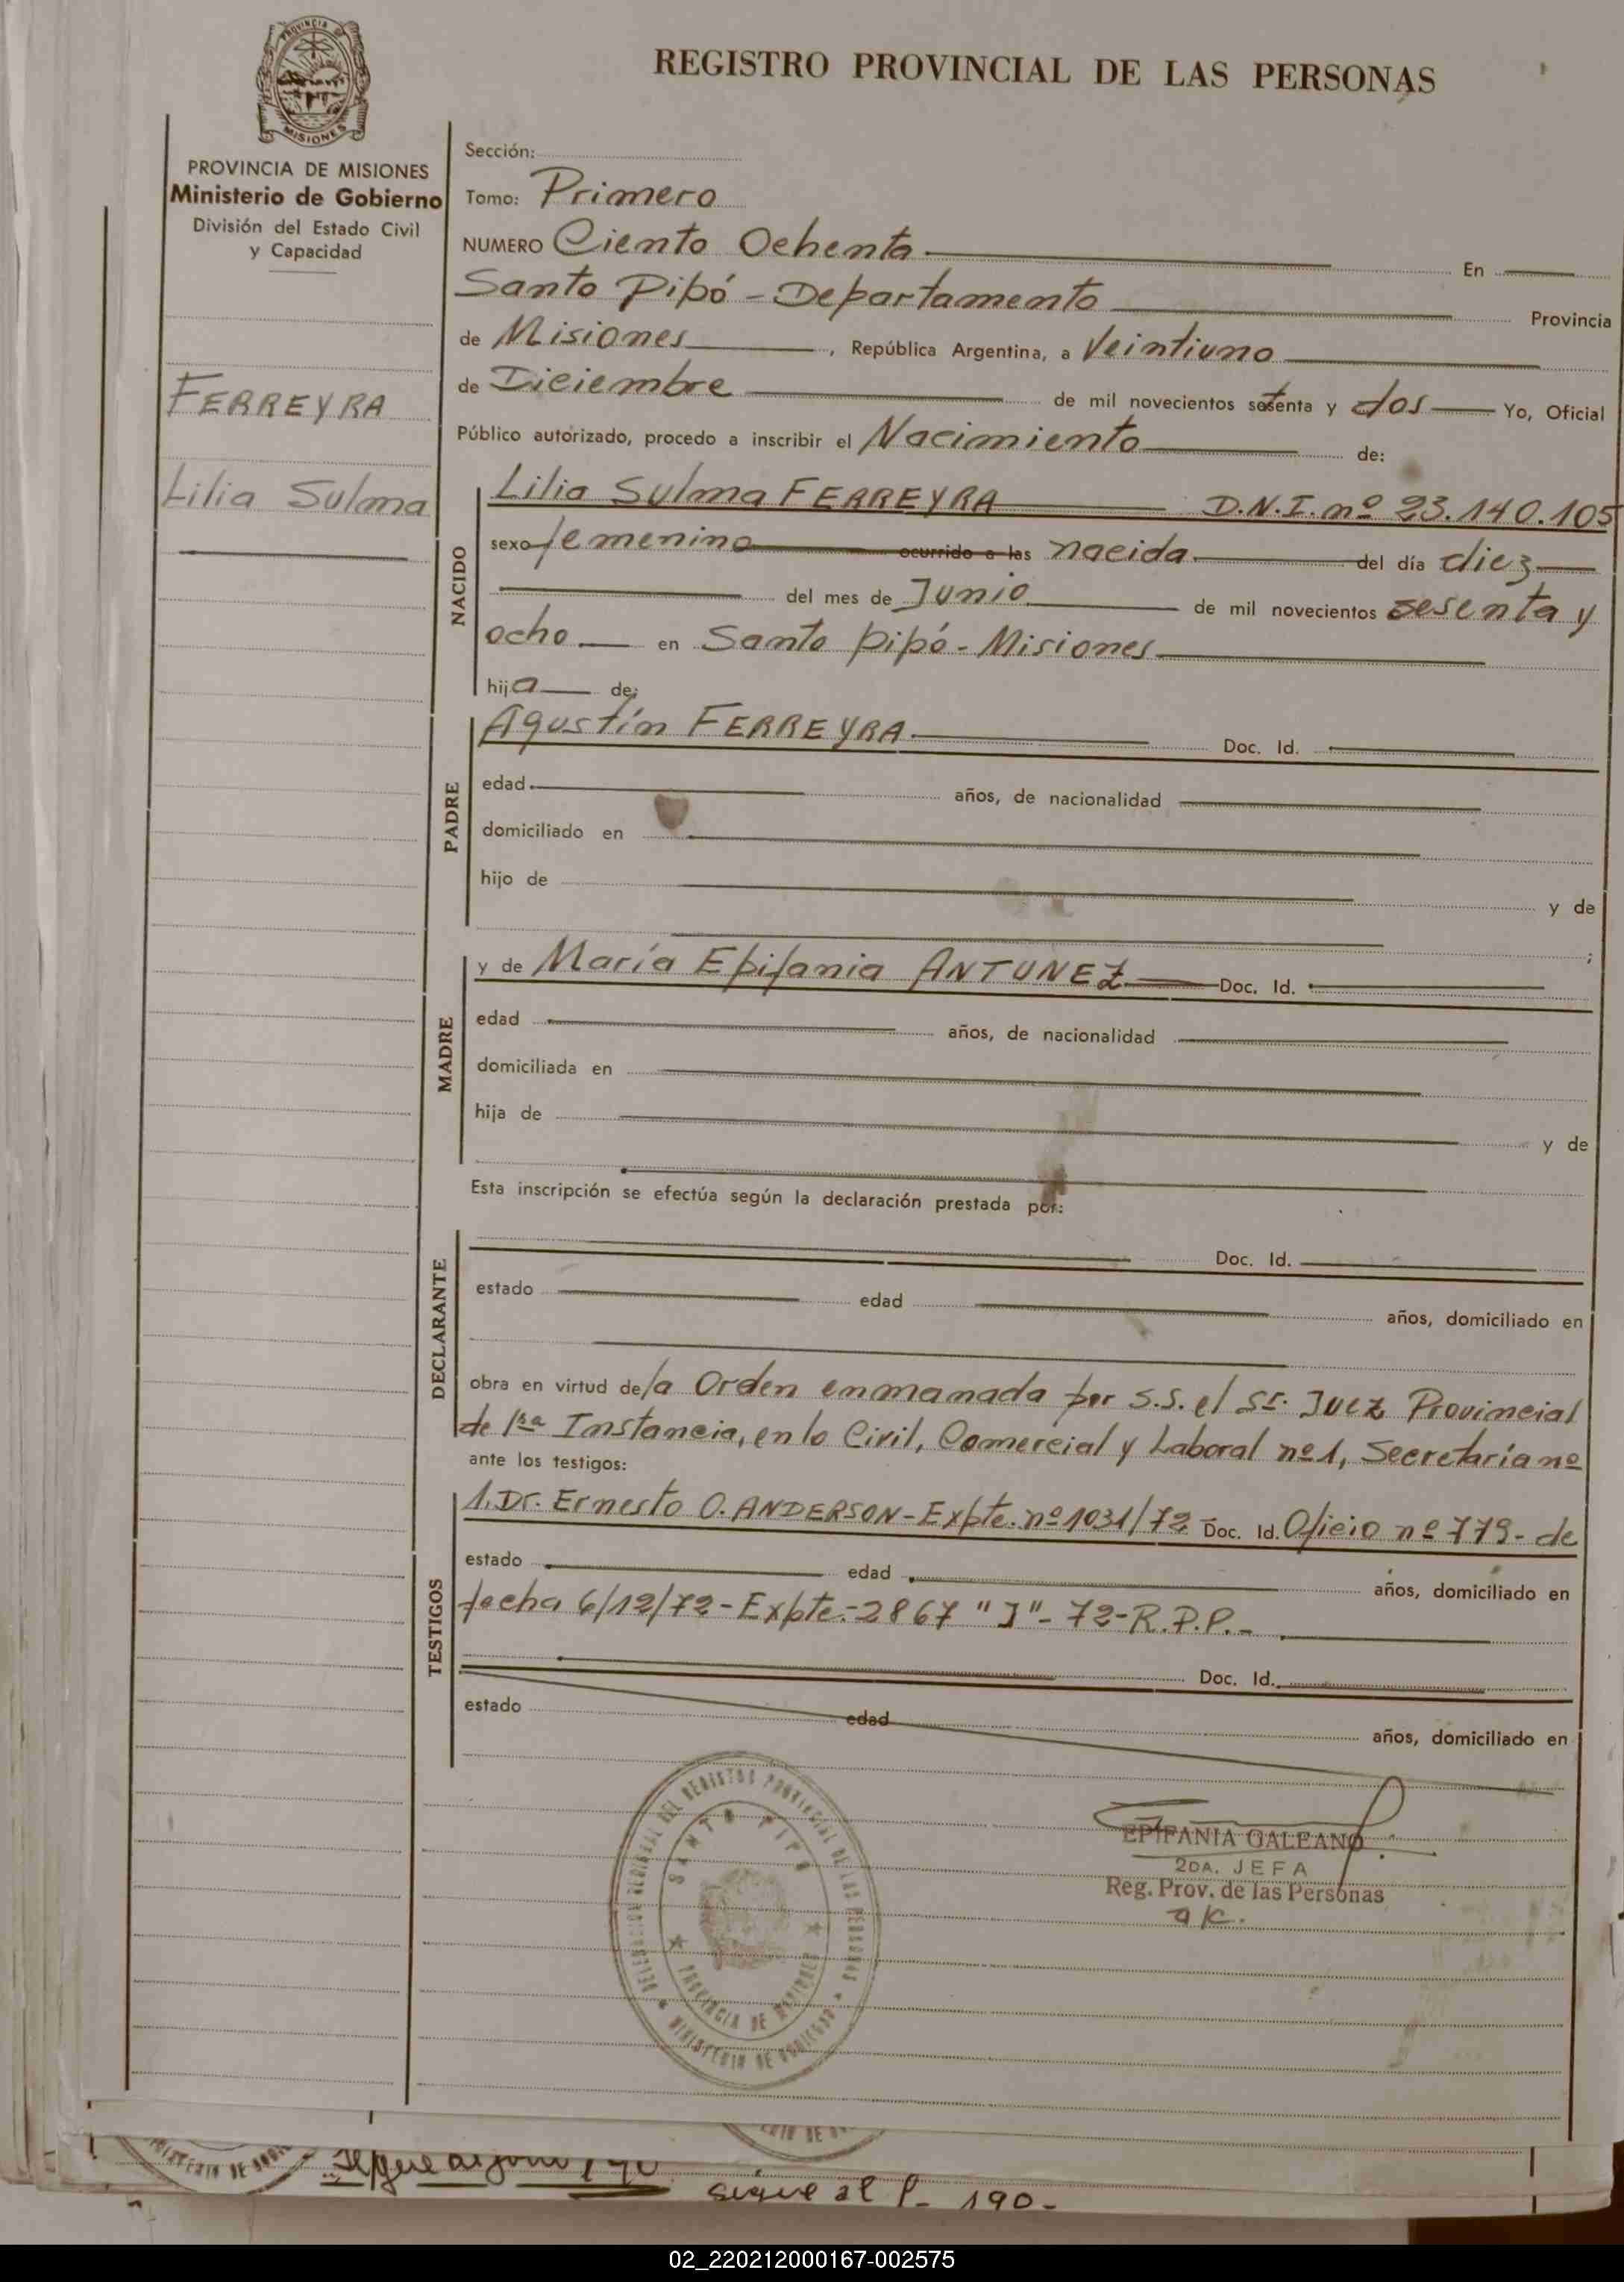 REGISTRO PROVINCIAL DE LAS PERSONAS
PROVINCIA DE
MISIONES
PROVINCIA DE MISIONES
Ministerio de Gobierno
División del Estado Civil
y Capacidad
FERREYRA
Lilia Sulma
Sección:
Tomo: Primero
NUMERO Ciento Ochenta En
Santo Pipó - Departamento Provincia
de Misiones, República Argentina, a Veintiuno
de Diciembre de mil novecientos setenta y dos Yo, Oficial
Público autorizado, procedo a inscribir el Nacimiento de:
NACIDO
Lilia Sulma FERREYRA D.N.I. nº 23.140.105
sexo femenino ocurrido a las nacida del día diez
del mes de Junio de mil novecientos sesenta y
ocho en Santo Pipó - Misiones
hija de:
PADRE
Agustín FERREYRA Doc. Id.
edad años, de nacionalidad
domiciliado en
hijo de y de
;
MADRE
y de María Epifania ANTUNEZ Doc. Id.
edad años, de nacionalidad
domiciliada en
hija de y de
Esta inscripción se efectúa según la declaración prestada por:
DECLARANTE
Doc. Id.
estado edad años, domiciliado en
obra en virtud de la Orden enmanada por S.S. el Sr. Juez Provincial
de 1ra Instancia, en lo Civil, Comercial y Laboral nº 1, Secretaría nº
ante los testigos:
TESTIGOS
1. Dr. Ernesto O. ANDERSON - Expte. nº 1031/72 Doc. Id. Oficio nº 779 - de
estado edad años, domiciliado en
fecha 6/12/72 - Expte. - 2867 "J" - 72 - R.P.P. -
Doc. Id.
estado edad años, domiciliado en
DELEGACION REGIONAL DEL REGISTRO PROVINCIAL DE LAS PERSONAS
SANTO PIPO
PROVINCIA DE MISIONES
MINISTERIO DE GOBIERNO
EPIFANIA GALEANO
2DA. JEFA
Reg. Prov. de las Personas
a/c.
MINISTERIO DE
sigue al f- 190-
02_220212000167-002575